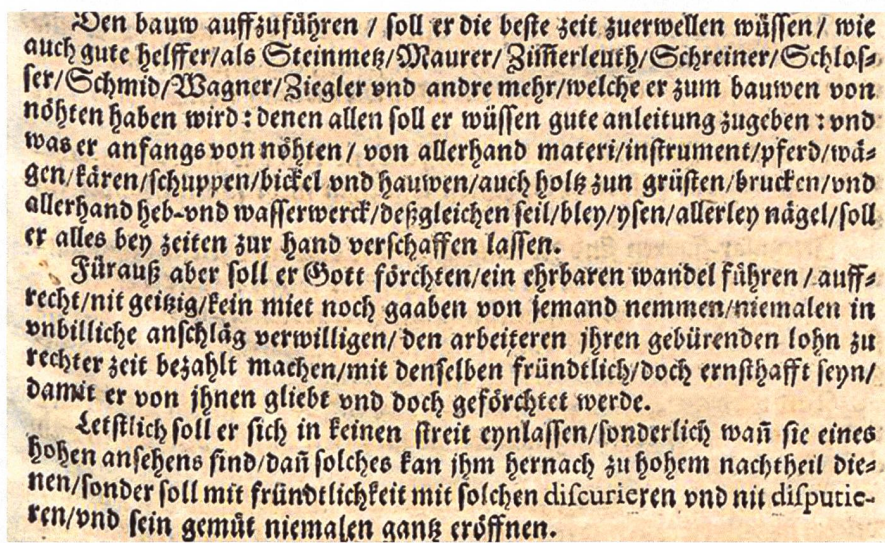 Den bauw auffzuführen / soll er die beste zeit zuerwellen wüssen / wie
auch gute helffer/als Steinmetz/Maurer/Zim̃erleuth/Schreiner/Schlos-
ser/Schmid/Wagner/Ziegler vnd andre mehr/welche er zum bauwen von
nöhten haben wird : denen allen soll er wüssen gute anleitung zugeben : vnd
was er anfangs von nöhten / von allerhand materi/instrument/pferd/wä-
gen/kären/schuppen/bickel vnd hauwen/auch holtz zun grüsten/brucken/vnd
allerhand heb-vnd wasserwerck/deßgleichen seil/bley/ysen/allerley nägel/soll
er alles bey zeiten zur hand verschaffen lassen.
Fürauß aber soll er Gott förchten/ein ehrbaren wandel führen / auff-
recht/nit geitzig/kein miet noch gaaben von jemand nemmen/niemalen in
vnbilliche anschläg verwilligen/den arbeiteren jhren gebürenden lohn zu
rechter zeit bezahlt machen/mit denselben fründtlich/doch ernsthafft seyn/
damit er von jhnen gliebt vnd doch geförchtet werde.
Letstlich soll er sich in keinen streit eynlassen/sonderlich wañ sie eines
hohen ansehens sind/dañ solches kan jhm hernach zu hohem nachtheil die-
nen/sonder soll mit fründtlichkeit mit solchen discurieren vnd nit disputie-
ren/vnd sein gemüt niemalen gantz eröffnen.